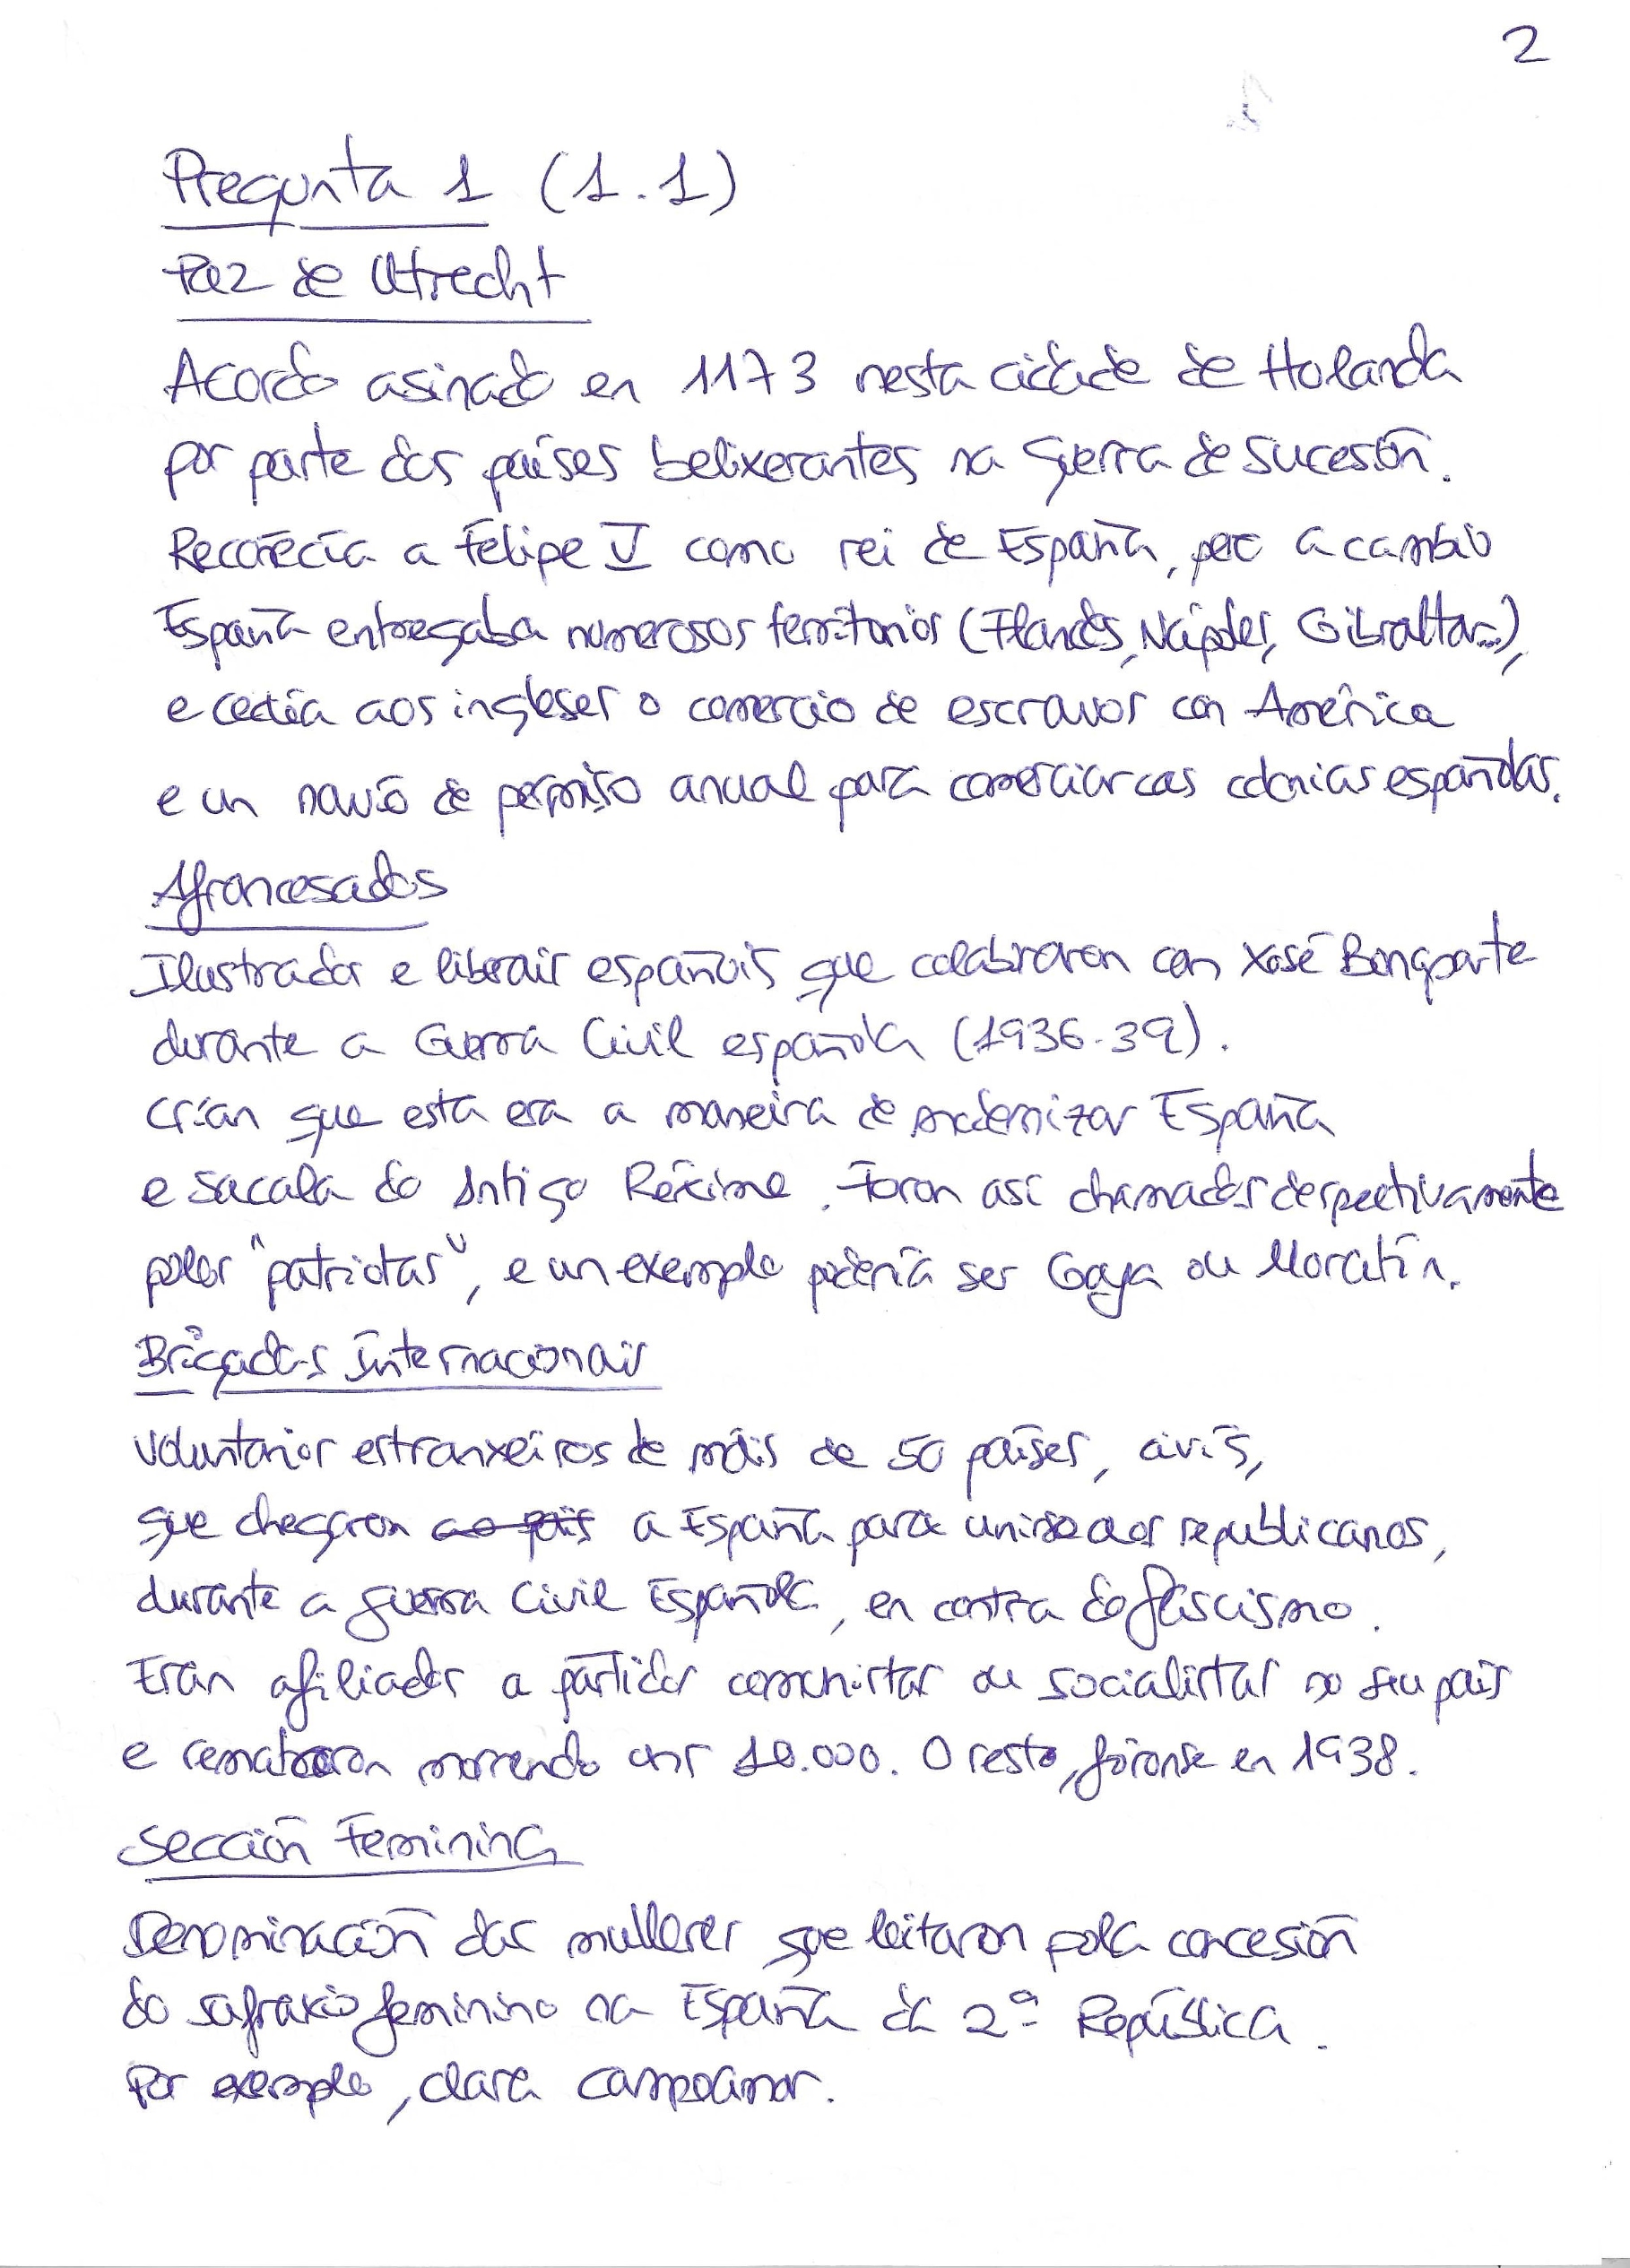 2
Pregunta 1 (1.1)
Paz de Utrecht
Acordo asinado en 1173 nesta cidade de Holanda
por parte dos países belixerantes na Guerra de Sucesión.
Recoñecía a Felipe V como rei de España, pero a cambio
España entregaba numerosos territorios (Flandes, Nápoles, Gibraltar...),
e cedía aos ingleses o comercio de escravos con América
e un navío de permiso anual para comerciar cas colonias españolas.
Afrancesados
Ilustrados e liberais españois que colaboraron con Xosé Bonaparte
durante a Guerra Civil española (1936-39).
Crían que esta era a maneira de modernizar España
e sacala do Antigo Réxime. Foron así chamados despectivamente
polos "patriotas", e un exemplo podería ser Goya ou Moratín.
Brigadas Internacionais
Voluntarios estranxeiros de máis de 50 países, civís,
que chegaron ao país a España para unirse aos republicanos,
durante a guerra Civil Española, en contra do fascismo.
Eran afiliados a partidos comunistas ou socialistas no seu país
e remataron morrendo uns 10.000. O resto, fóronse en 1938.
Sección Feminina
Denominación das mulleres que loitaron pola concesión
do sufraxio feminino na España da 2ª República.
Por exemplo, Clara Campoamor.